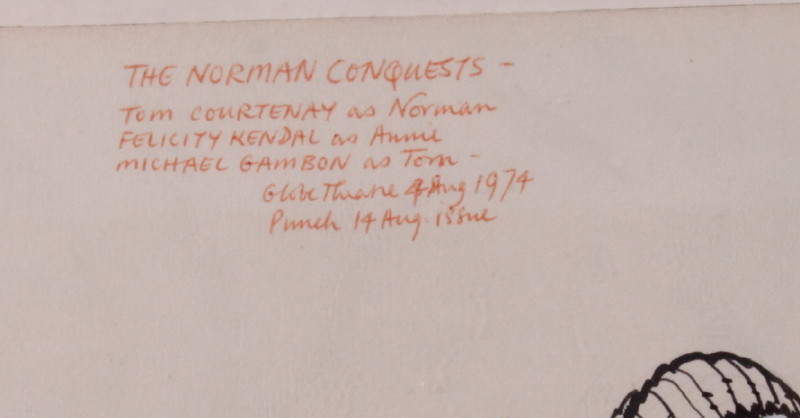 THE NORMAN CONQUESTS -
Tom COURTENAY as Norman
FELICITY KENDAL as Annie
MICHAEL GAMBON as Tom -
Globe Theatre 4 Aug 1974
Punch 14 Aug. issue